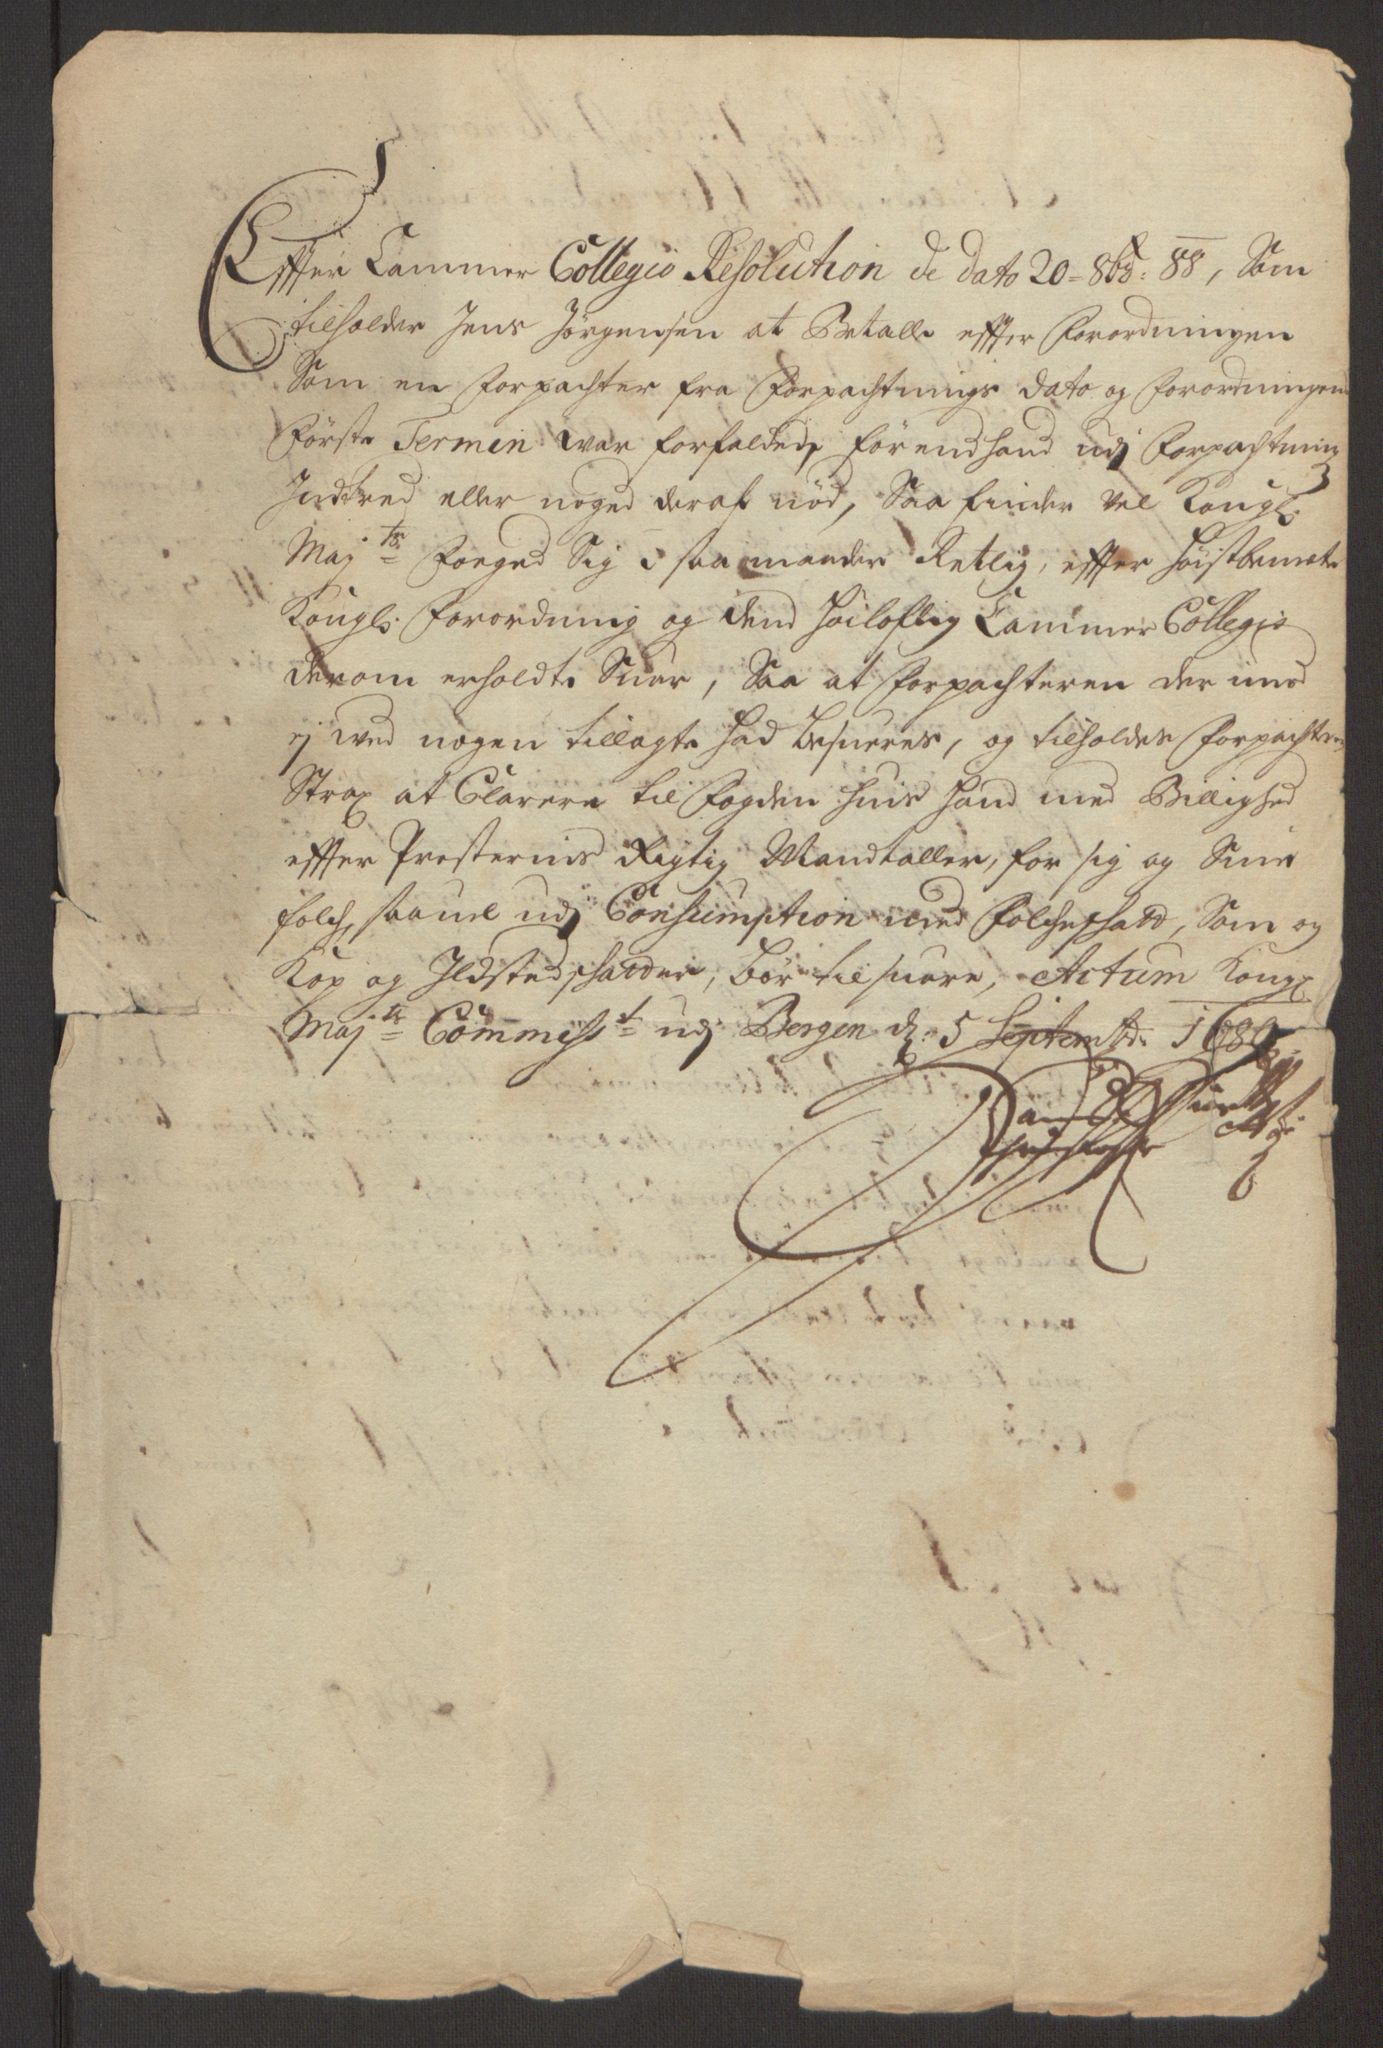 Effter Cammer Collegio Resolution de dato 20 = 8br: 88, Som
tilholder Jens Jörgensen at Betalle effter Forordningen
Som en Forpachter fra Forpachtnings dato og Forordningens
Förste Termin war forfalden, förend hand udj Forpachtning
Indtred eller noged deraf nöd, Saa finder vel Kongl:
Maj:ts Foeged Sig i saa maader Retlig, effter höistbemelte
Kongl: Forordning og dend höiloflig Cammer Collegio
derom erholdte Suar, Saa at Forpachteren der imod
ej wed nogen tillagte had besueres, og tilholdes Forpachteren
Strax at Clarere til Fogden huis hand med Billighed
effter Presternis Rigtig Mandtaller, for sig og Sine
folch, saauel udj Consumption med Folcheschatt, Som og
Kop og Ildstedschatter, bör tilsuare, Actum Kongl
Maj:ts Commiss:t udj Bergen d: 5 Septembr: 1689